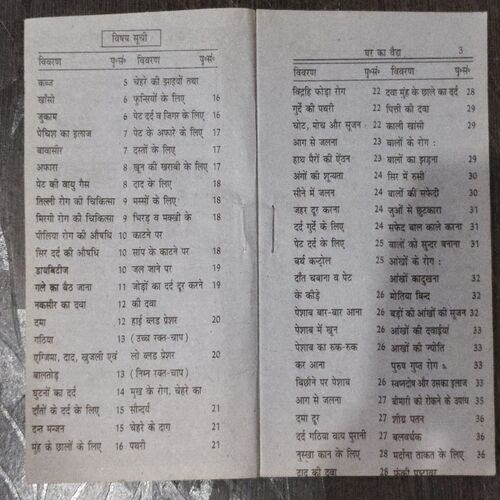 विषय सूची
विवरण पृ॰सं॰ विवरण पृ॰सं॰
कब्ज 5 चेहरे की झाइयों तथा
खाँसी 6 फुन्सियों के लिए 16
जुकाम 6 पेट दर्द व जिगर के लिए 16
पेचिश का इलाज 7 पेट के अफारे के लिए 17
बावासीर 7 दस्तों के लिए 17
अफारा 8 खून की खराबी के लिए 17
पेट की वायु गैस 8 दाद के लिए 18
तिल्ली रोग की चिकित्सा 9 मस्सों के लिए 18
मिरगी रोग की चिकित्सा 9 भिरड़ व मक्खी के 18
पीलिया रोग की औषधि 10 काटने पर
सिर दर्द की औषधि 10 सांप के काटने पर 18
डायबिटीज 10 जल जाने पर 19
गले का बैठ जाना 11 जोड़ों का दर्द दूर करने 19
नकसीर का दवा 12 की दवा
दमा 12 हाई ब्लड प्रेशर 20
गठिया 13 (उच्च रक्त-चाप)
एग्जिमा, दाद, खुजली एवं लो ब्लड प्रेशर 20
बालतोड़ 13 (निम्न रक्त-चाप)
घुटनों का दर्द 14 मुख के रोग, चेहरे का
दाँतों के दर्द के लिए 15 सौन्दर्य 21
दन्त मन्जन 15 चेहरे के दाग 21
मुंह के छालों के लिए 16 पथरी 21
घर का वैद्य 3
विवरण पृ॰सं॰ विवरण पृ॰सं॰
विद्रहि फोड़ा रोग 22 दवा मुंह के छाले का दर्द 28
गुर्दे की पथरी 22 पित्ती की दवा 29
चोट, मोच और सूजन 22 काली खांसी 29
आग से जलना 23 बालों के रोग:
हाथ पैरों की ऐंठन 23 बालों का झड़ना 29
अंगों की शून्यता 24 सिर में रुसी 30
सीने में जलन 24 बालों की सफेदी 30
जहर दूर करना 24 जुओं से छुटकारा 31
दर्द गुर्दे के लिए 24 सफेद बाल काले करना 31
पेट दर्द के लिए 25 बालों को सुन्दर बनाना 31
बर्थ कन्ट्रोल 25 आंखों के रोग:
दाँत चबाना व पेट आंखों का दुखना 32
के कीड़े 26 मोतिया बिन्द 32
पेशाब बार-बार आना 26 बड़ों की आंखों की सूजन 32
पेशाब में खून 26 आंखों की दवाईयां 33
पेशाब का रुक-रुक आंखों की ज्योति 33
कर आना 26 पुरुष गुप्त रोग: 33
बिछौने पर पेशाब 26 स्वप्नदोष और उसका इलाज 33
आग से जलना 27 बीमारी को रोकने के उपाय 35
दमा दूर 27 शीघ्र पतन 36
दर्द गठिया वाय पुरानी 27 बलवर्धक 36
नुस्खा कान के लिए 28 मर्दाना ताकत के लिए 36
दाद की दवा 28